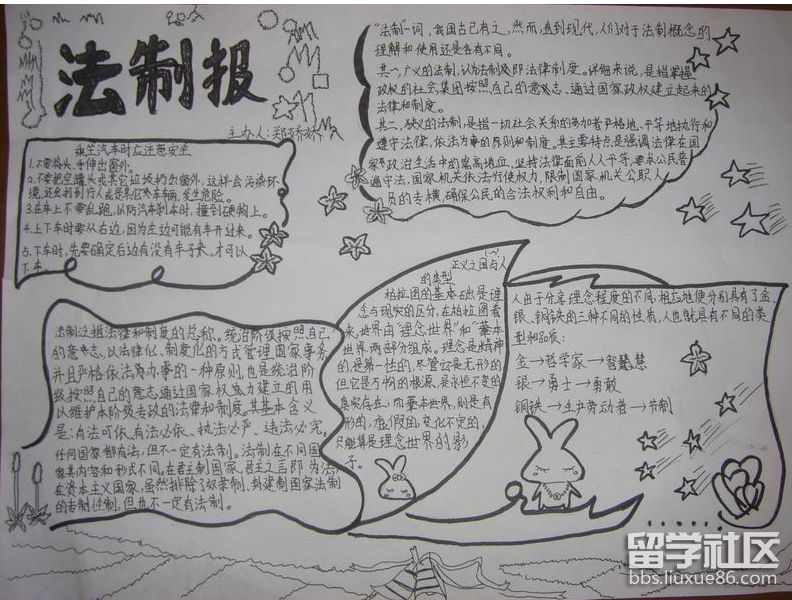 法制报
主办人:郑娇娇
乘坐汽车时应注意安全
1.不要将头、手伸出窗外。
2.不要把空罐头或其它垃圾扔出窗外，这样会污染环
境，还会打到行人或是其它车辆，发生危险。
3.在车上不要乱跑，以防汽车刹车时，撞到硬物上。
4.上下车时要从右边，因为左边可能有车开过来。
5.下车时，先要确定后边有没有车子来，才可以
下车。
"法制"一词，我国古已有之，然而，直到现代，人们对于法制概念的
理解和使用还是各有不同。
其一，广义的法制，认为法制即法律制度。详细来说，是指掌握
政权的社会集团按照自己的意志、通过国家政权建立起来的
法律和制度。
其二，狭义的法制，是指一切社会关系的参加者严格地、平等地执行和
遵守法律，依法办事的原则和制度。其主要特点是强调法律在国
家政治生活中的崇高地位，坚持法律面前人人平等，要求公民普
遍守法，国家机关依法行使权力，限制国家机关公职人
员的专横，确保公民的合法权利和自由。
法制泛指法律和制度的总称。统治阶级按照自己
的意志、以法律化、制度化的方式管理国家事务
并且严格依法办事的一种原则，也是统治阶
级按照自己的意志通过国家权力建立的用
以维护本阶级专政的法律和制度。其基本含义
是：有法可依、有法必依、执法必严、违法必究。
任何国家都有法，但不一定有法制。法制在不同国
家其内容和形式不同。在君主制国家，君主之言即为法
在资本主义国家，虽然排除了奴隶制、封建制国家法制
的专制性制，但也不一定有法制。
正义之国与人
的类型
柏拉图的基本础是理
念与现实的区分，在柏拉图看
来，世界由"理念世界"和"基本
世界两部分组成。理念是精神
的，是第一性的，尽管它是无形的
但它是万物的根源，是永恒不变的
真实存在；而基本世界，则是有
形的，虚假的，变化不定的，
只能算是理念世界的影
子。
人由于分享理念程度的不同，相应地使分别具有了金、
银、铜铁的三种不同的性质，人也就具有不同的类
型和品质：
金→哲学家→智慧
银→勇士→勇敢
铜铁→生产劳动者→节制
留学社区
bbs.liuxue86.com